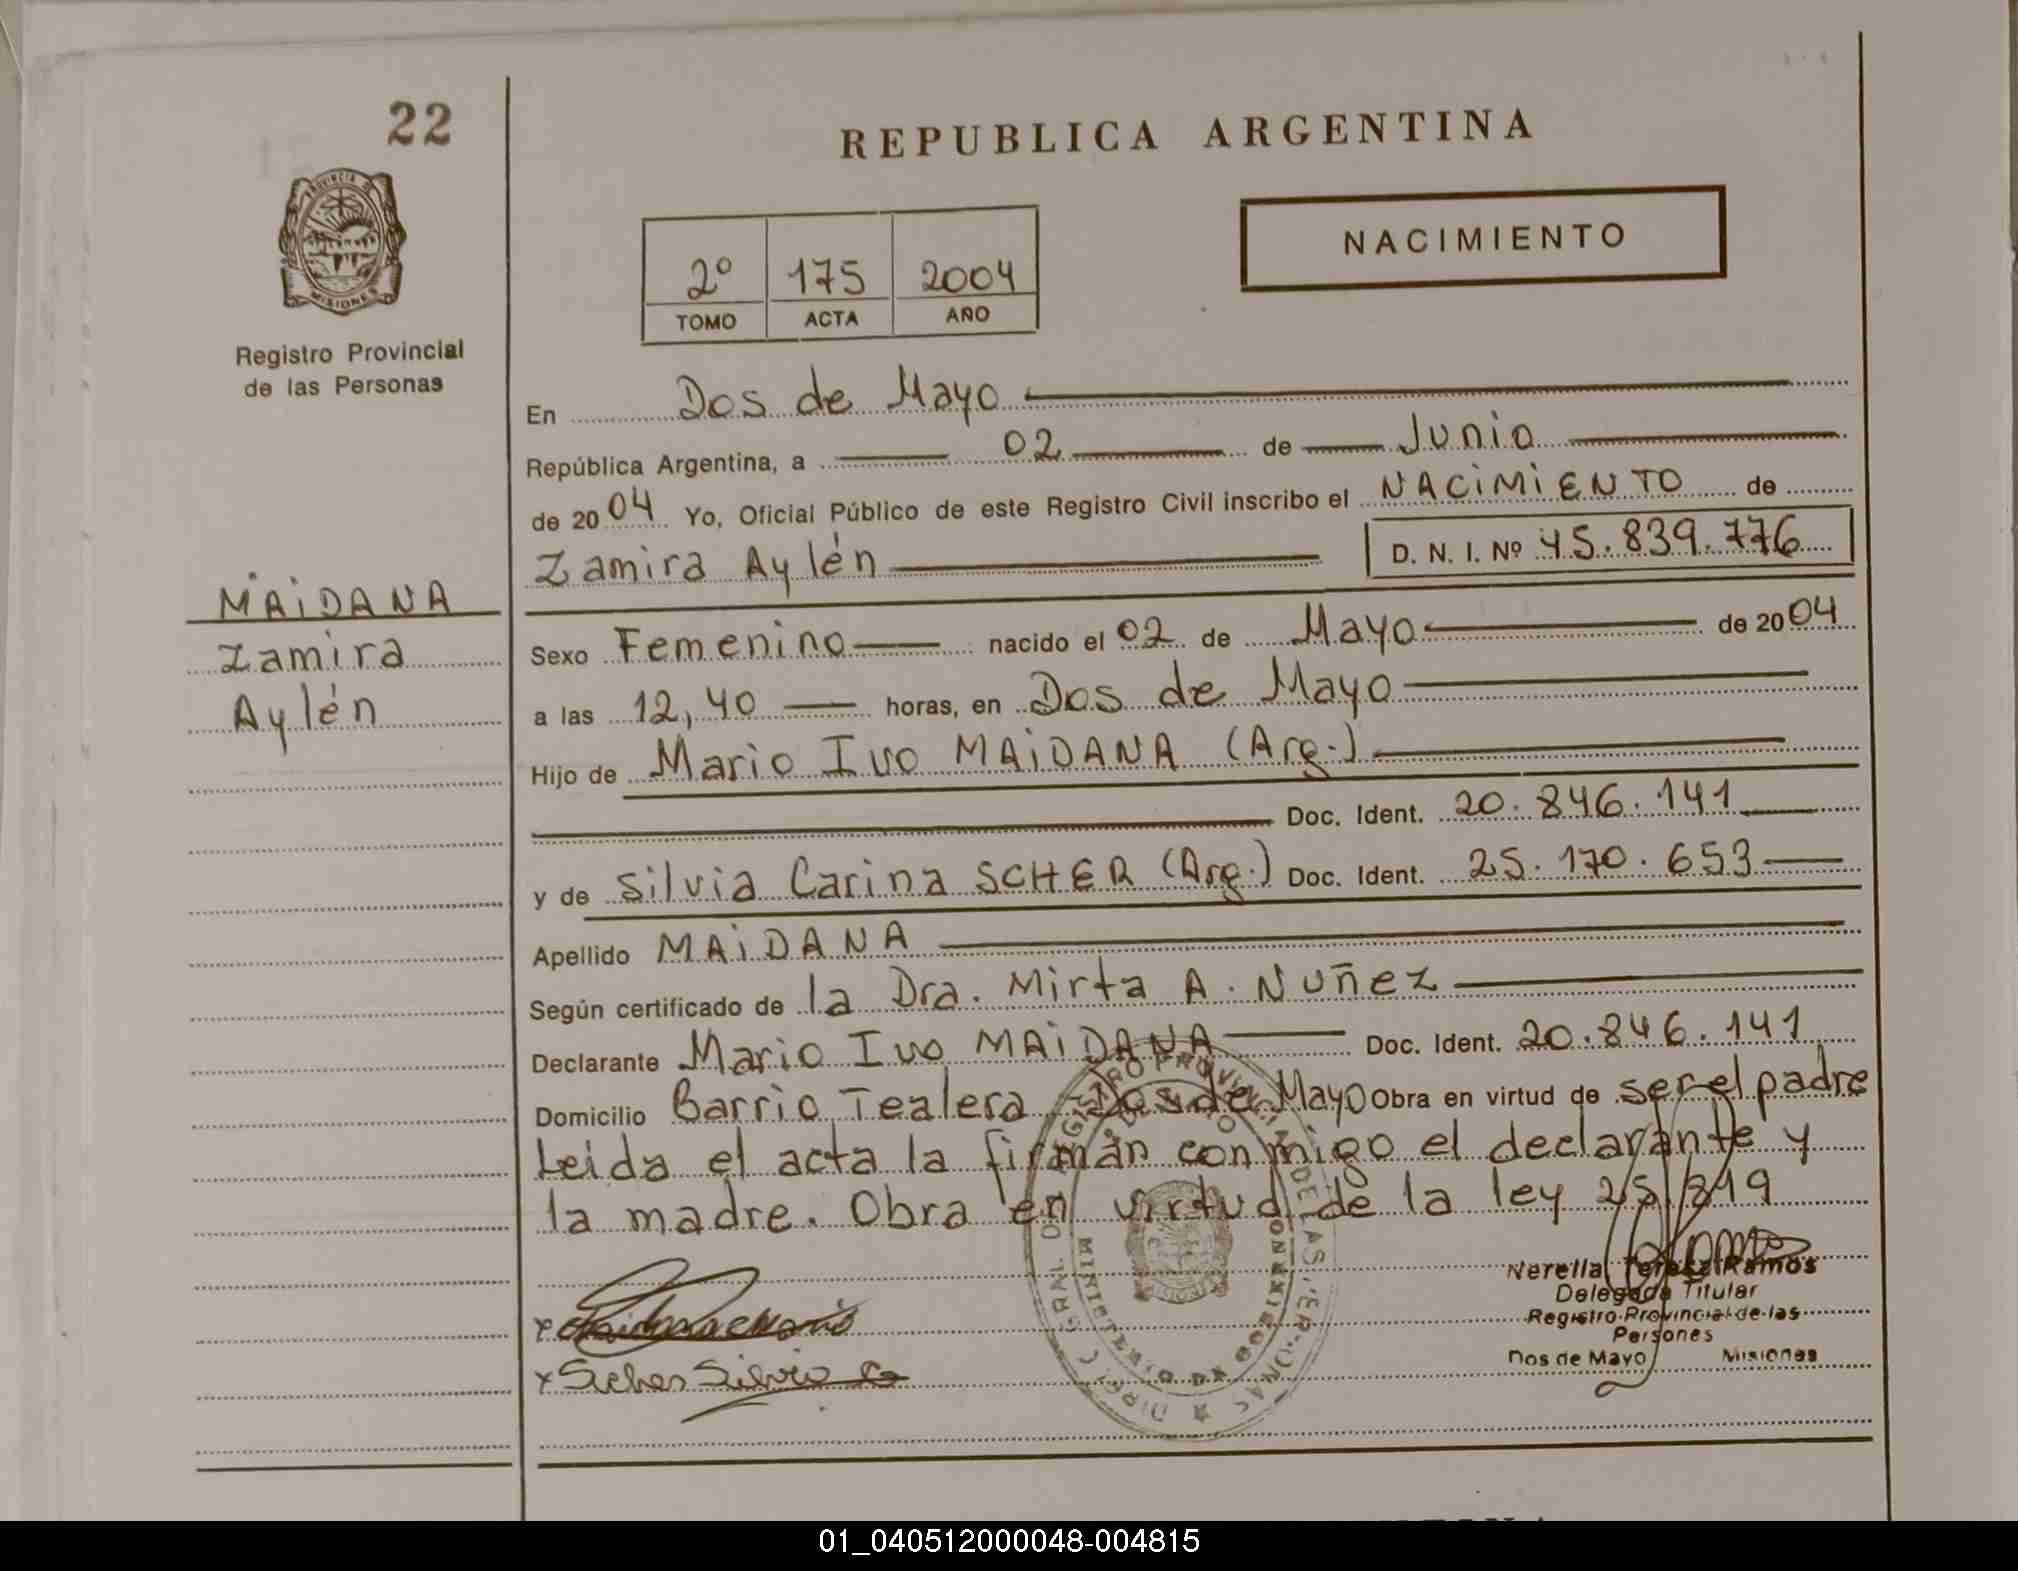 22
REPUBLICA ARGENTINA
PROVINCIA DE
MISIONES
NACIMIENTO
2º 175 2004
TOMO ACTA AÑO
Registro Provincial
de las Personas
En Dos de Mayo
República Argentina, a 02 de Junio
de 2004 Yo, Oficial Público de este Registro Civil inscribo el NACIMIENTO de
Zamira Aylén D. N. I. Nº 45.839.776
MAIDANA
Zamira
Aylén
Sexo Femenino nacido el 02 de Mayo de 2004
a las 12,40 horas, en Dos de Mayo
Hijo de Mario Ivo MAIDANA (Arg.)
Doc. Ident. 20.846.141
y de Silvia Carina SCHER (Arg.) Doc. Ident. 25.170.653
Apellido MAIDANA
Según certificado de la Dra. Mirta A. Nuñez
Declarante Mario Ivo MAIDANA Doc. Ident. 20.846.141
Domicilio Barrio Tealera Dos de Mayo Obra en virtud de ser el padre
Leida el acta la firman conmigo el declarante y
la madre. Obra en virtud de la ley 25.819
Nerella Teresa Ramos
Delegada Titular
Registro Provincial de las
Persones
Dos de Mayo Misiones
x Scher Silvia C
01_040512000048-004815